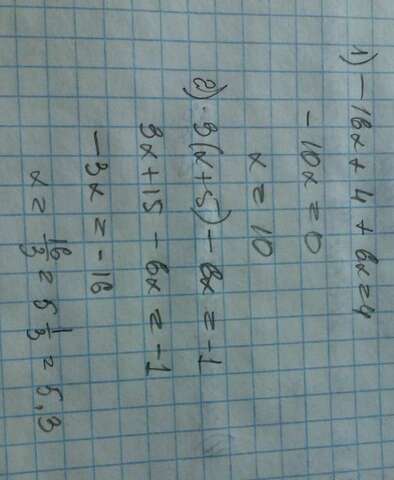 1) -16x + 4 + 6x = 4
-10x = 0
x = 10
2) 3(x+5) - 6x = -1
3x + 15 - 6x = -1
-3x = -16
x = 16/3 = 5 1/3 = 5,3